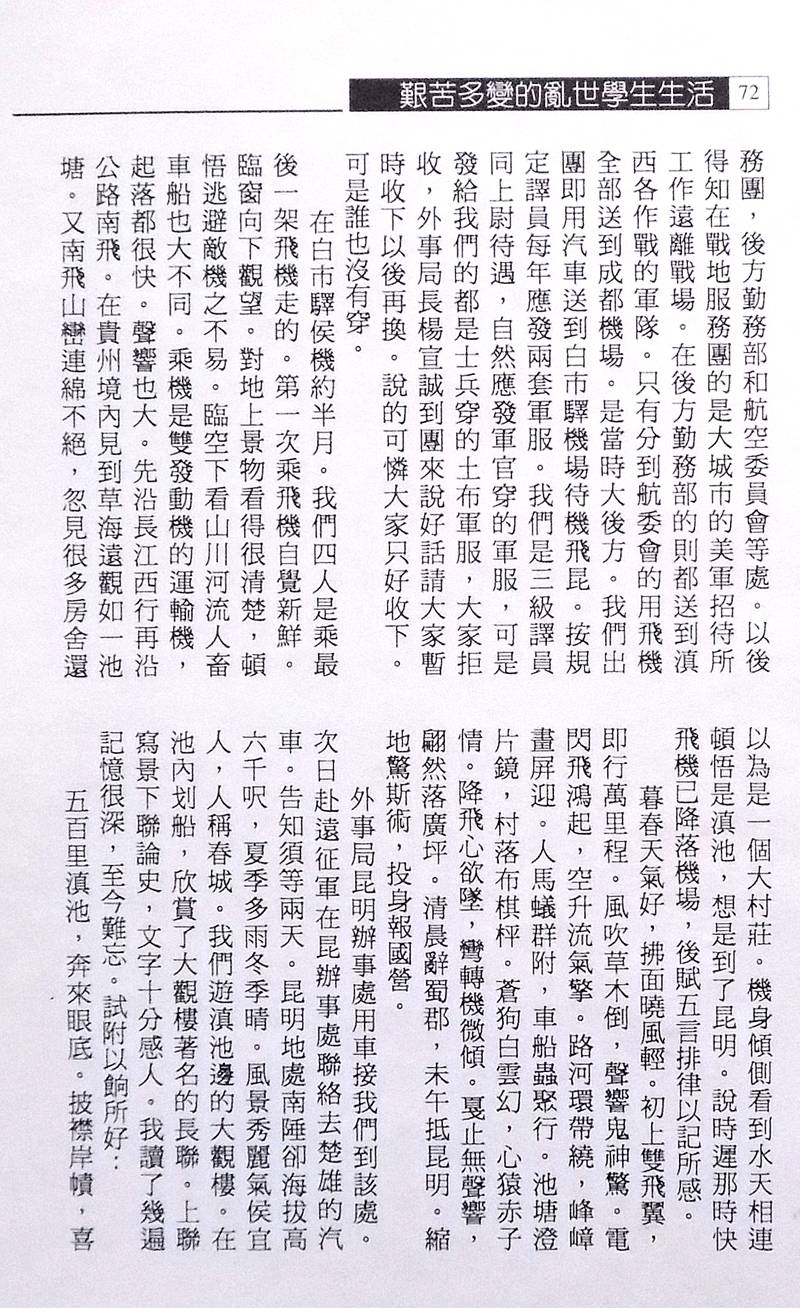 艱苦多變的亂世學生生活 72
務團，後方勤務部和航空委員會等處。以後
得知在戰地服務團的是大城市的美軍招待所
工作遠離戰場。在後方勤務部的則都送到滇
西各作戰的軍隊。只有分到航委會的用飛機
全部送到成都機場。是當時大後方。我們出
團即用汽車送到白市驛機場待機飛昆。按規
定譯員每年應發兩套軍服。我們是三級譯員
同上尉待遇，自然應發軍官穿的軍服，可是
發給我們的都是士兵穿的土布軍服，大家拒
收，外事局長楊宣誠到團來說好話請大家暫
時收下以後再換。說的可憐大家只好收下。
可是誰也沒有穿。
在白市驛侯機約半月。我們四人是乘最
後一架飛機走的。第一次乘飛機自覺新鮮。
臨窗向下觀望。對地上景物看得很清楚，頓
悟逃避敵機之不易。臨空下看山川河流人畜
車船也大不同。乘機是雙發動機的運輸機，
起落都很快。聲響也大。先沿長江西行再沿
公路南飛。在貴州境內見到草海遠觀如一池
塘。又南飛山巒連綿不絕，忽見很多房舍還
以為是一個大村莊。機身傾側看到水天相連
頓悟是滇池，想是到了昆明。說時遲那時快
飛機已降落機場，後賦五言排律以記所感。
暮春天氣好，拂面曉風輕。初上雙飛翼，
即行萬里程。風吹草木倒，聲響鬼神驚。電
閃飛鴻起，空升流氣擎。路河環帶繞，峰嶂
畫屏迎。人馬蟻群附，車船蟲聚行。池塘澄
片鏡，村落布棋枰。蒼狗白雲幻，心猿赤子
情。降飛心欲墜，彎轉機微傾。戛止無聲響，
翩然落廣坪。清晨辭蜀郡，未午抵昆明。縮
地驚斯術，投身報國營。
外事局昆明辦事處用車接我們到該處。
次日赴遠征軍在昆辦事處聯絡去楚雄的汽
車。告知須等兩天。昆明地處南陲卻海拔高
六千呎，夏季多雨冬季晴。風景秀麗氣侯宜
人，人稱春城。我們遊滇池邊的大觀樓。在
池內划船，欣賞了大觀樓著名的長聯。上聯
寫景下聯論史，文字十分感人。我讀了幾遍
記憶很深，至今難忘。試附以餉所好：
五百里滇池，奔來眼底。披襟岸幘，喜